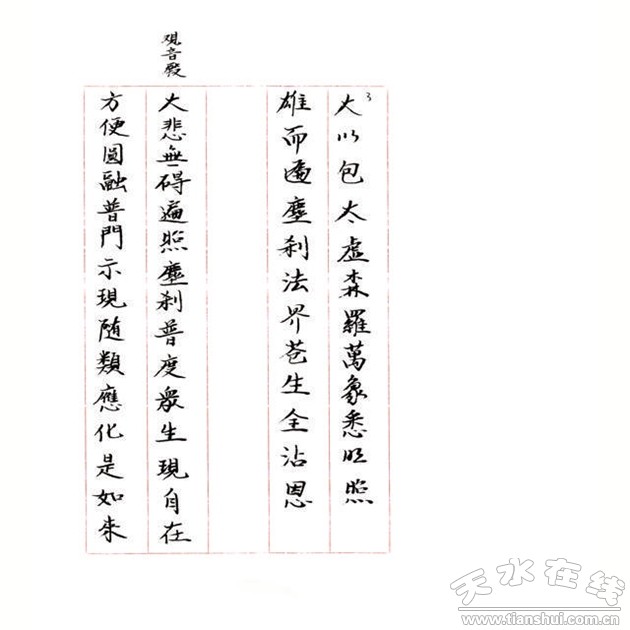 大以包太虛森羅萬象悉照
雄而遍塵刹法界蒼生全沾恩
覌音殿
大悲無碍遍照塵刹普度衆生現自在
方便圓融普門示現随類應化是如来
天水在线
www.tianshui.com.cn